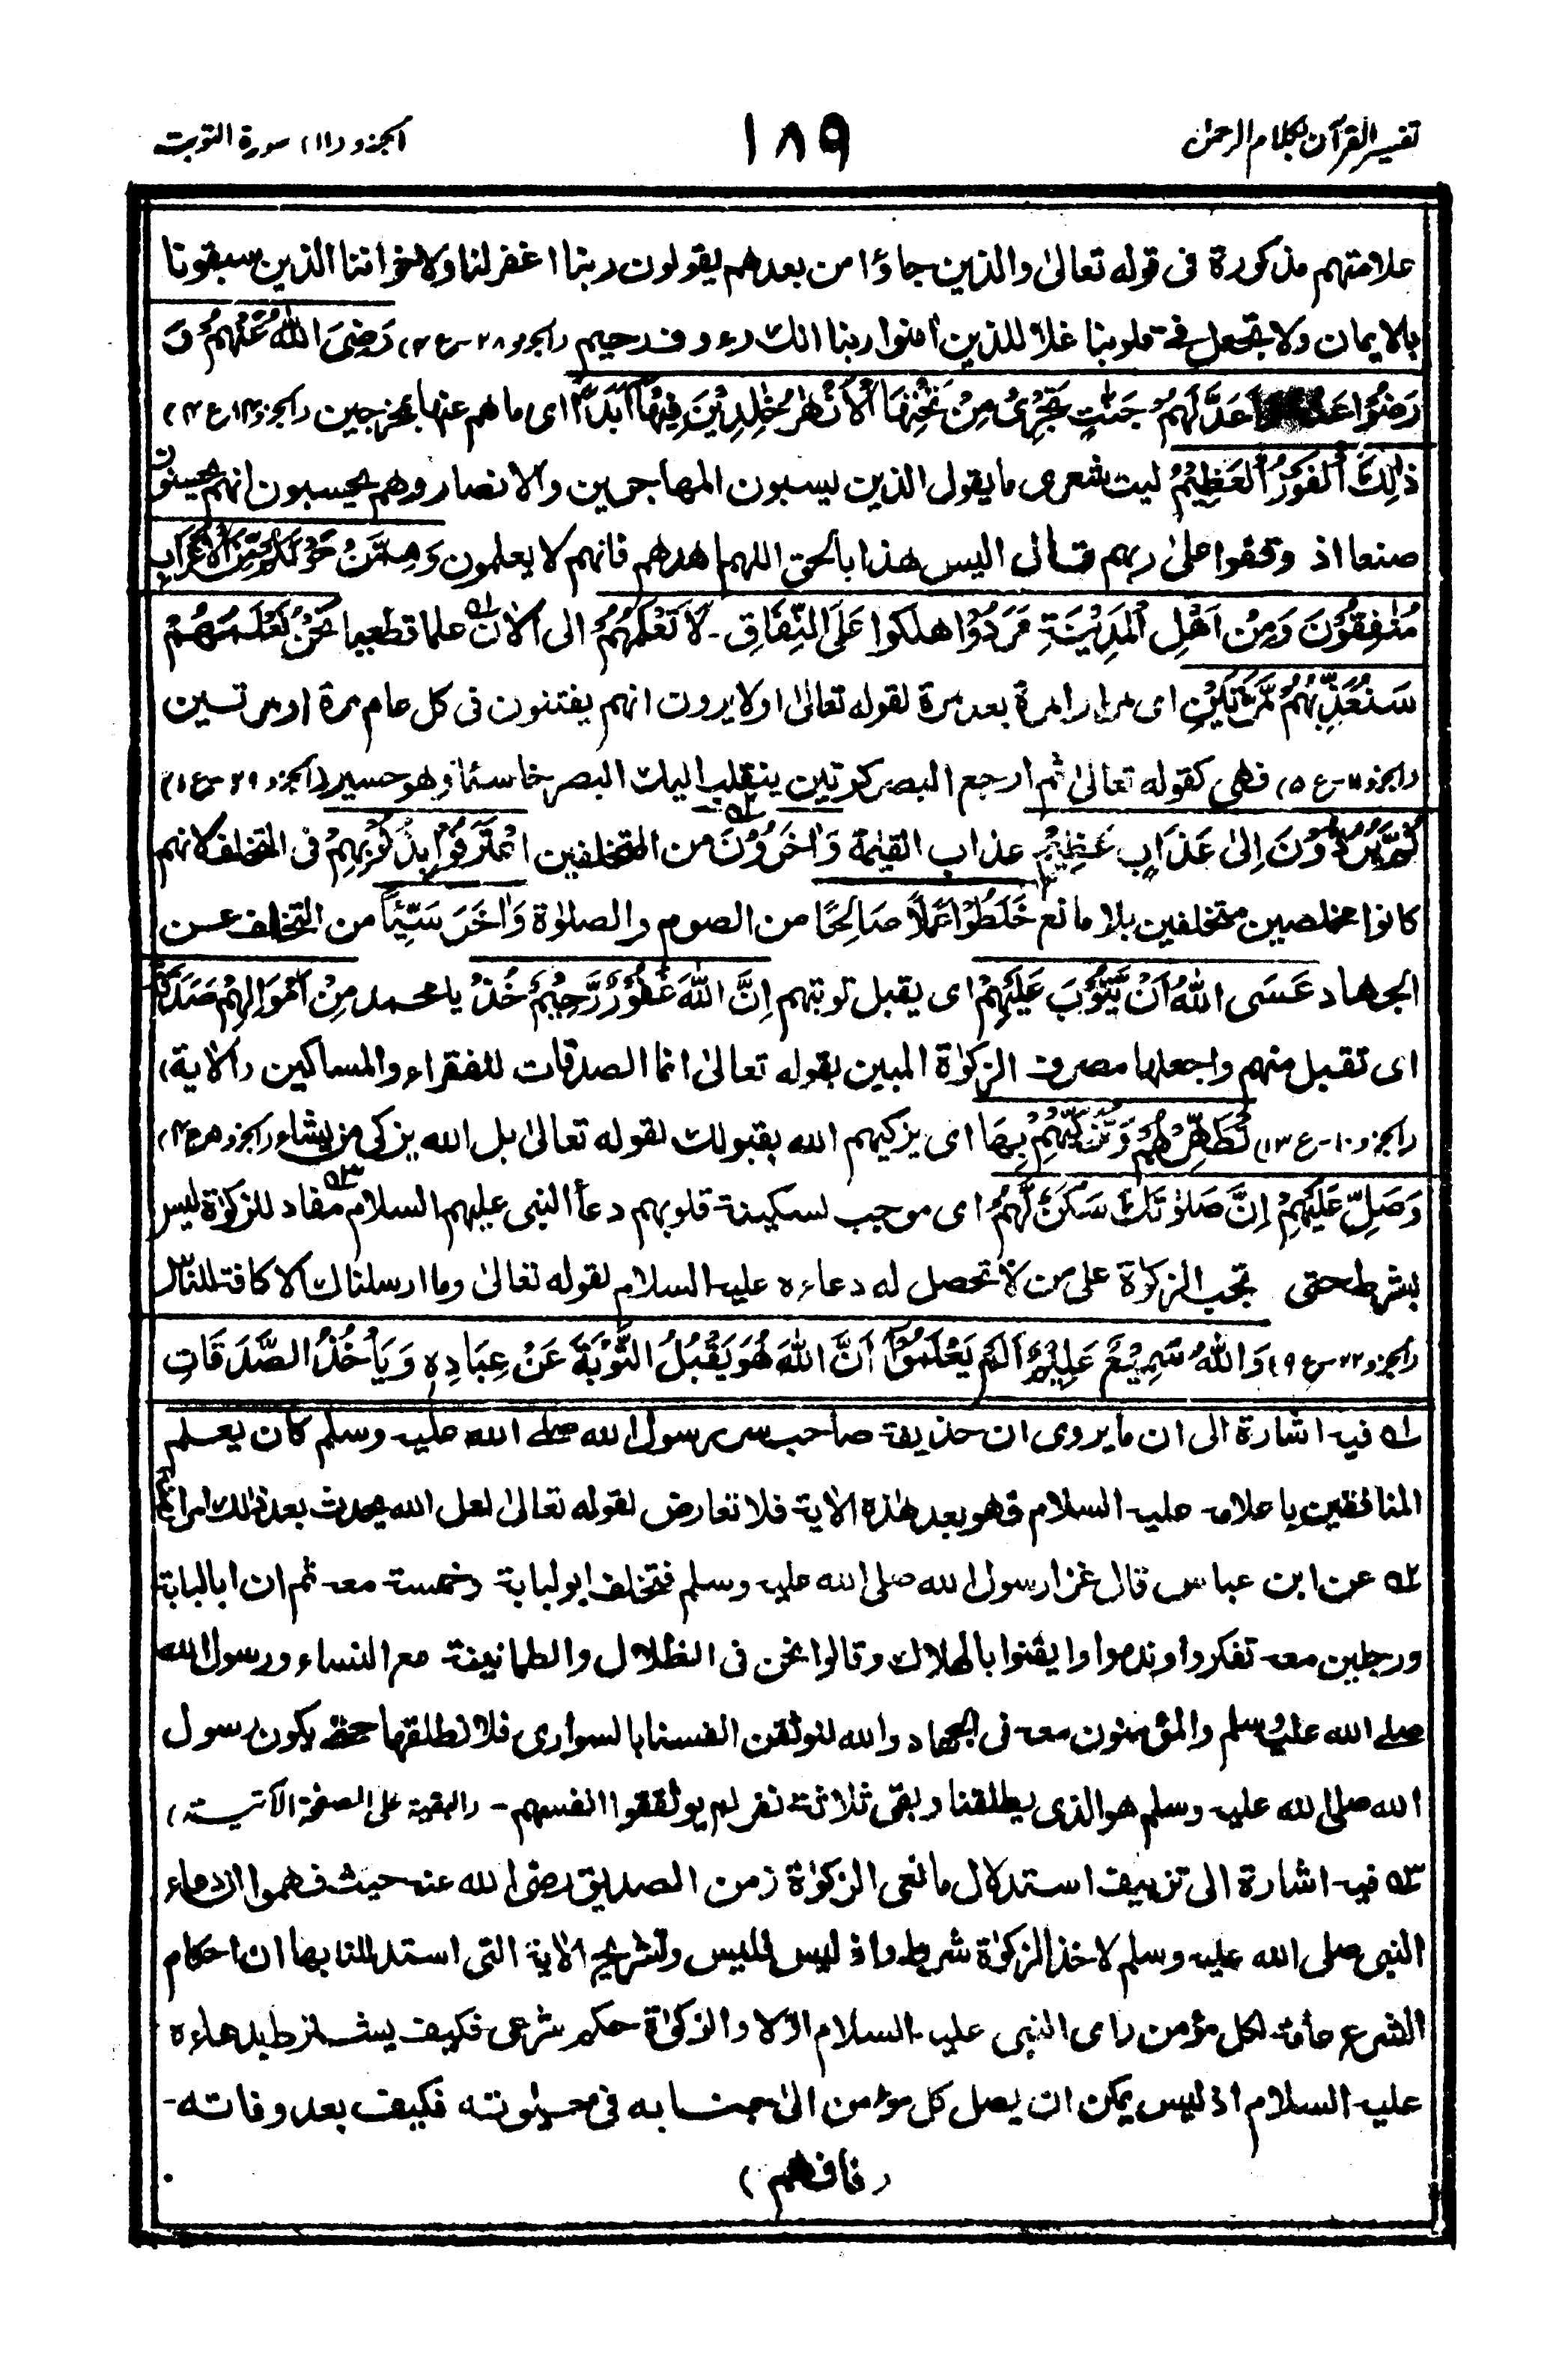 تفسير القرآن بكلام الرحمن
١٨٩
الجزو (١١) سورة التوبة
علامتهم مذكورة فى قوله تعالىٰ والذين جاؤا من بعدهم يقولون ربنا اغفر لنا ولاخواننا الذين سبقونا
بالايمان ولا تجعل فى قلوبنا غلا للذين اٰمنوا ربنا انك رءوف رحيم (الجزو ٢٨ - ع ٤) رَضِىَ اللّٰهُ عَنْهُمْ وَ
رَضُوْا عَنْهُ وَاَعَدَّ لَهُمْ جَنّٰتٍ تَجْرِىْ مِنْ تَحْتِهَا الْاَنْهٰرُ خٰلِدِيْنَ فِيْهَا اَبَدًا اى ما هم عنها بمخرجين (الجزو ١٤ ع ٤)
ذٰلِكَ الْفَوْزُ الْعَظِيْمُ ليت شعرى ما يقول الذين يسبون المهاجرين والانصار وهم يحسبون انهم يحسنون
صنعا اذ وقفوا علىٰ ربهم قال اليس هذا بالحق اللهم اهدهم فانهم لا يعلمون وَمِمَّنْ حَوْلَكُمْ مِّنَ الْاَعْرَابِ
مُنٰفِقُوْنَ وَمِنْ اَهْلِ الْمَدِيْنَةِ مَرَدُوْا هلكوا عَلَى النِّفَاقِ - لَا تَعْلَمُهُمْ الى الاٰن ؎١ علما قطعيا نَحْنُ نَعْلَمُهُمْ
سَنُعَذِّبُهُمْ مَّرَّتَيْنِ اى مرارا مرة بعد مرة لقوله تعالىٰ اولا يرون انهم يفتنون فى كل عام مرة او مرتين
(الجزو ١١ - ع ٥) فهى كقوله تعالىٰ ثم ارجع البصر كرتين ينقلب اليك البصر خاسئا وهو حسير (الجزو ٢٩ - ع ١)
ثُمَّ يُرَدُّوْنَ اِلٰى عَذَابٍ عَظِيْمٍ عذاب القيٰمة وَاٰخَرُوْنَ ؎٢ من المتخلفين اعْتَرَفُوْا بِذُنُوْبِهِمْ فى التخلف لانهم
كانوا مخلصين متخلفين بلا مانع خَلَطُوْا عَمَلًا صَالِحًا من الصوم والصلوٰة وَاٰخَرَ سَيِّئًا من التخلف عن
الجهاد عَسَى اللّٰهُ اَنْ يَّتُوْبَ عَلَيْهِمْ اى يقبل توبتهم اِنَّ اللّٰهَ غَفُوْرٌ رَّحِيْمٌ خُذْ يا محمد مِنْ اَمْوَالِهِمْ صَدَقَةً
اى تقبل منهم واجعلها مصرف الزكوٰة المبين بقوله تعالىٰ انما الصدقات للفقراء والمساكين (الاٰية)
(الجزو ١٠ - ع ١٣) تُطَهِّرُهُمْ وَتُزَكِّيْهِمْ بِهَا اى يزكيهم الله بقبولك لقوله تعالىٰ بل الله يزكى من يشاء (الجزو ٥ ع ٤)
وَصَلِّ عَلَيْهِمْ اِنَّ صَلٰوتَكَ سَكَنٌ لَّهُمْ اى موجب لسكينة قلوبهم دعأ النبى عليهم السلام ؎٣ مفاد للزكوٰة ليس
بشرط حتى تجب الزكوٰة على من لا تحصل له دعاءه عليه السلام لقوله تعالىٰ وما ارسلناك الا كافة للناس
(الجزو ٢٢ - ع ٩) وَاللّٰهُ سَمِيْعٌ عَلِيْمٌ اَلَمْ يَعْلَمُوْا اَنَّ اللّٰهَ هُوَ يَقْبَلُ التَّوْبَةَ عَنْ عِبَادِهٖ وَيَأْخُذُ الصَّدَقَاتِ
؎١ فيه اشارة الى ان ما يروى ان حذيفة صاحب سر رسول الله صلى الله عليه وسلم كان يعلم
المنافقين باعلامه عليه السلام فهو بعد هٰذه الاٰية فلا تعارض لقوله تعالىٰ لعل الله يحدث بعد ذٰلك امرا
؎٢ عن ابن عباس قال غزا رسول الله صلى الله عليه وسلم فتخلف ابو لبابة وخمسة معه ثم ان ابا لبابة
ورجلين معه تفكروا وندموا وايقنوا بالهلاك وقالوا نحن فى الظلال والطمانينة مع النساء ورسول الله
صلى الله عليه وسلم والمؤمنون معه فى الجهاد والله لنوثقن انفسنا بالسوارى فلا نطلقها حتى يكون رسول
الله صلى الله عليه وسلم هو الذى يطلقنا وبقى ثلاثة نفر لم يوثقوا انفسهم - (البقية على الصفحة الاٰتية)
؎٣ فيه اشارة الى تزييف استدلال مانعى الزكوٰة زمن الصديق رضى الله عنه حيث فهموا ان دعاء
النبى صلى الله عليه وسلم لاخذ الزكوٰة شرط واذ ليس فليس وتشريح الاٰية التى استدللنا بها ان احكام
الشرع عامة لكل مؤمن راى النبى عليه السلام اولا والزكوٰة حكم شرعى فكيف يشترط بدعاءه
عليه السلام اذ ليس يمكن ان يصل كل مؤمن الىٰ جنابه فى حيوٰته فكيف بعد وفاته -
(فافهم)